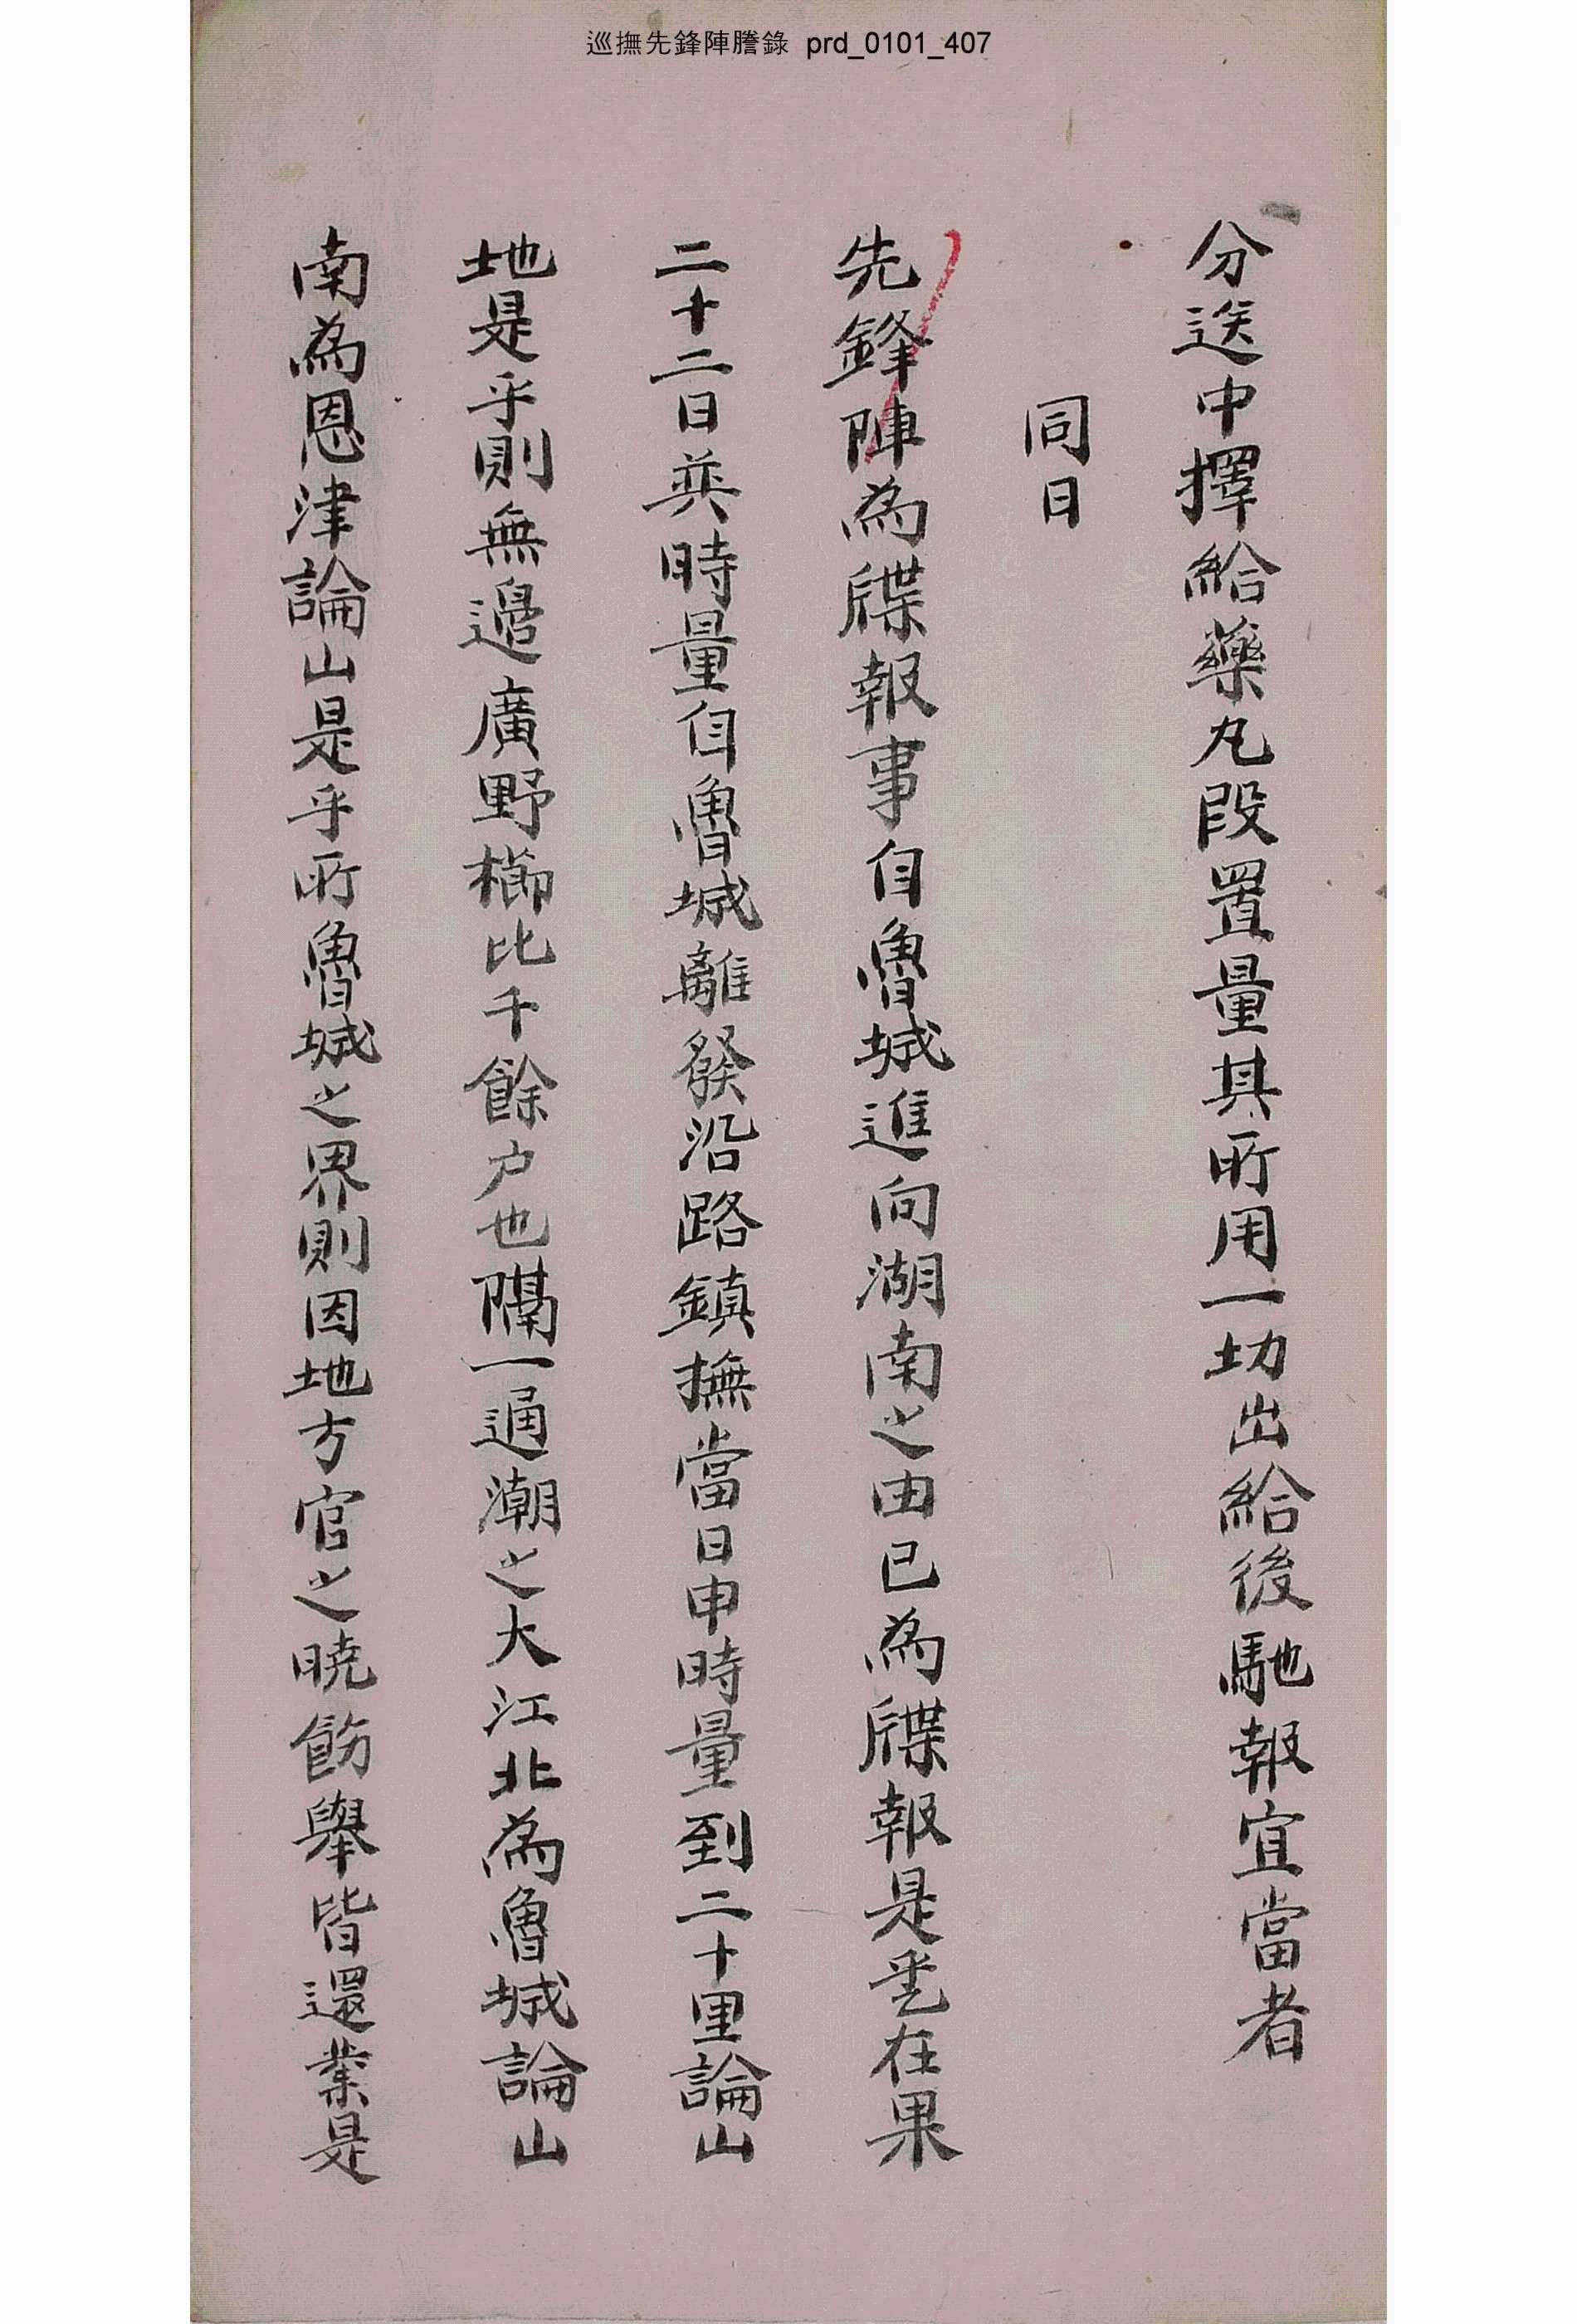 巡撫先鋒陣謄錄 prd_0101_407
分送中擇給藥丸段置量其所用一切出給後馳報宜當者
同日
先鋒陣爲牒報事自魯城進向湖南之由已爲牒報是乎在果
二十二日巳時量自魯城離發沿路鎭撫當日申時量到二十里論山
地是乎則無邊廣野櫛比千餘户也隔一通潮之大江北爲魯城論山
南爲恩津論山是乎所魯城之界則因地方官之曉飭擧皆還業是